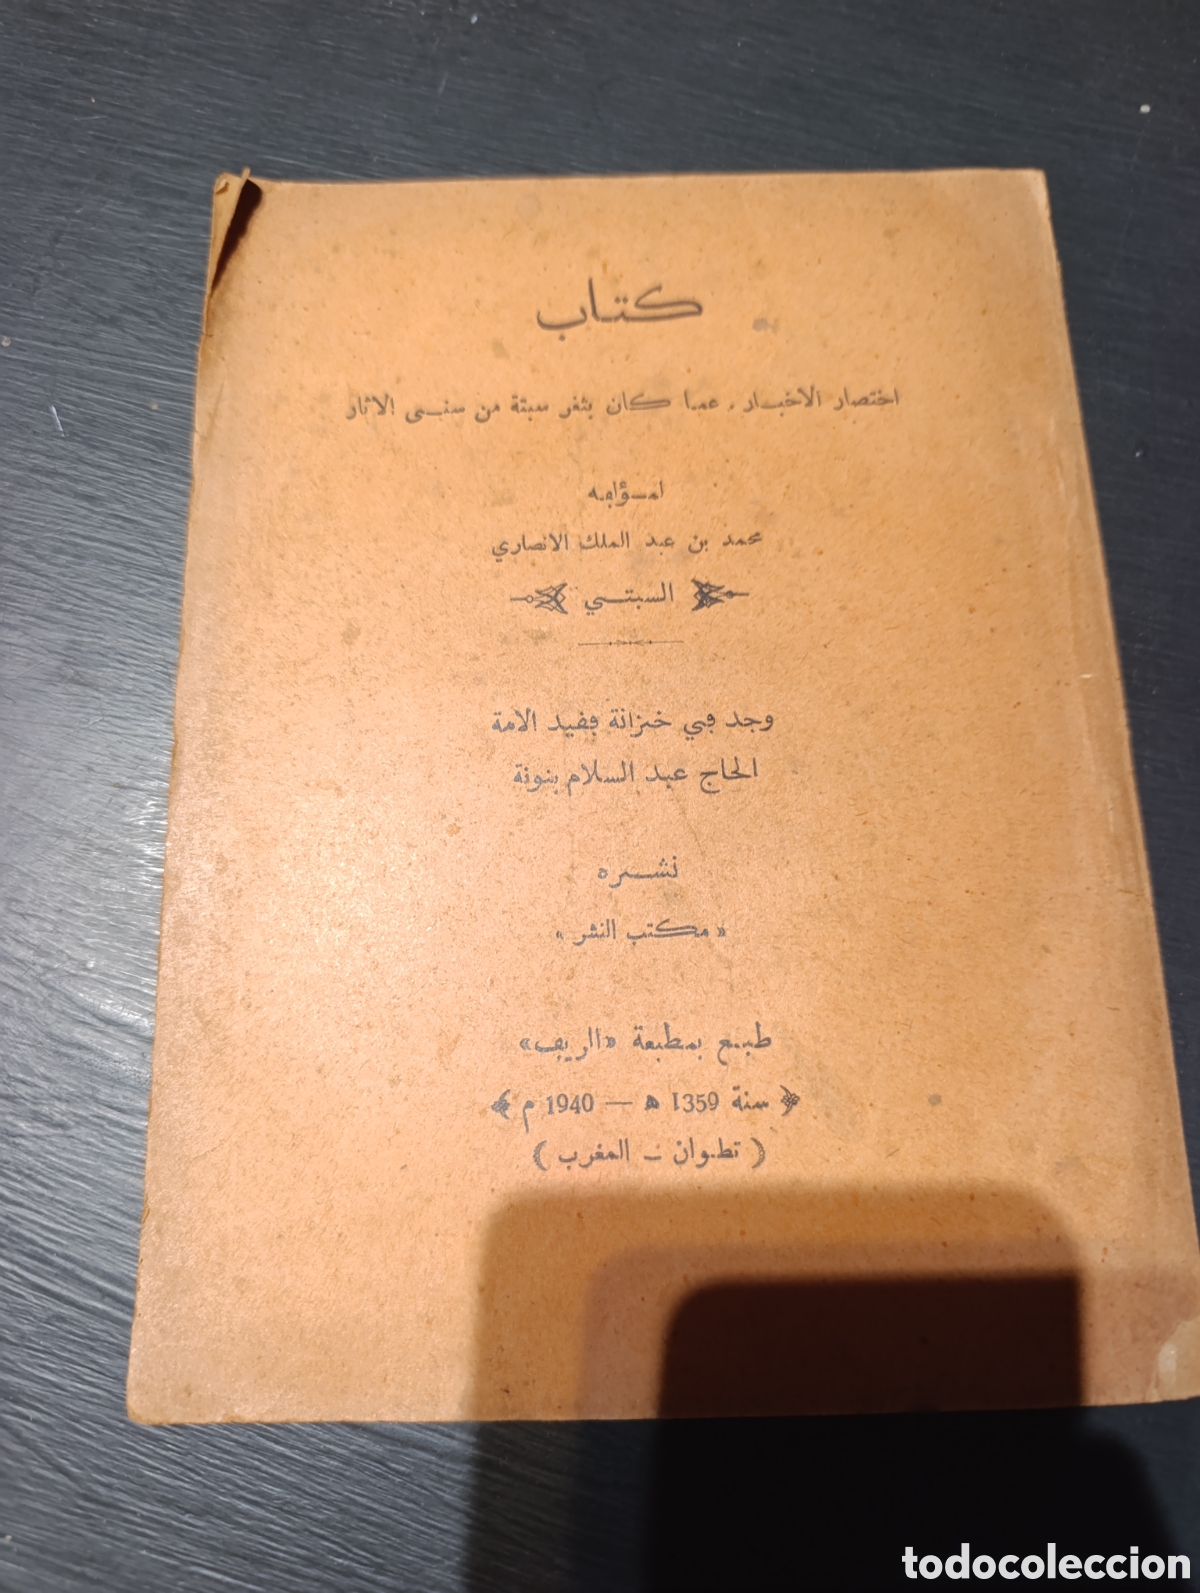 كتاب
اختصار الاخبار، عما كان بثغر سبتة من سنى الاثار
لمؤلفه
محمد بن عبد الملك الانصاري
السبتي
وجد في خزانة فقيد الامة
الحاج عبد السلام بنونة
نشره
« مكتب النشر »
طبع بمطبعة «الريف»
سنة 1359 ه — 1940 م
( تطوان - المغرب )
todocoleccion